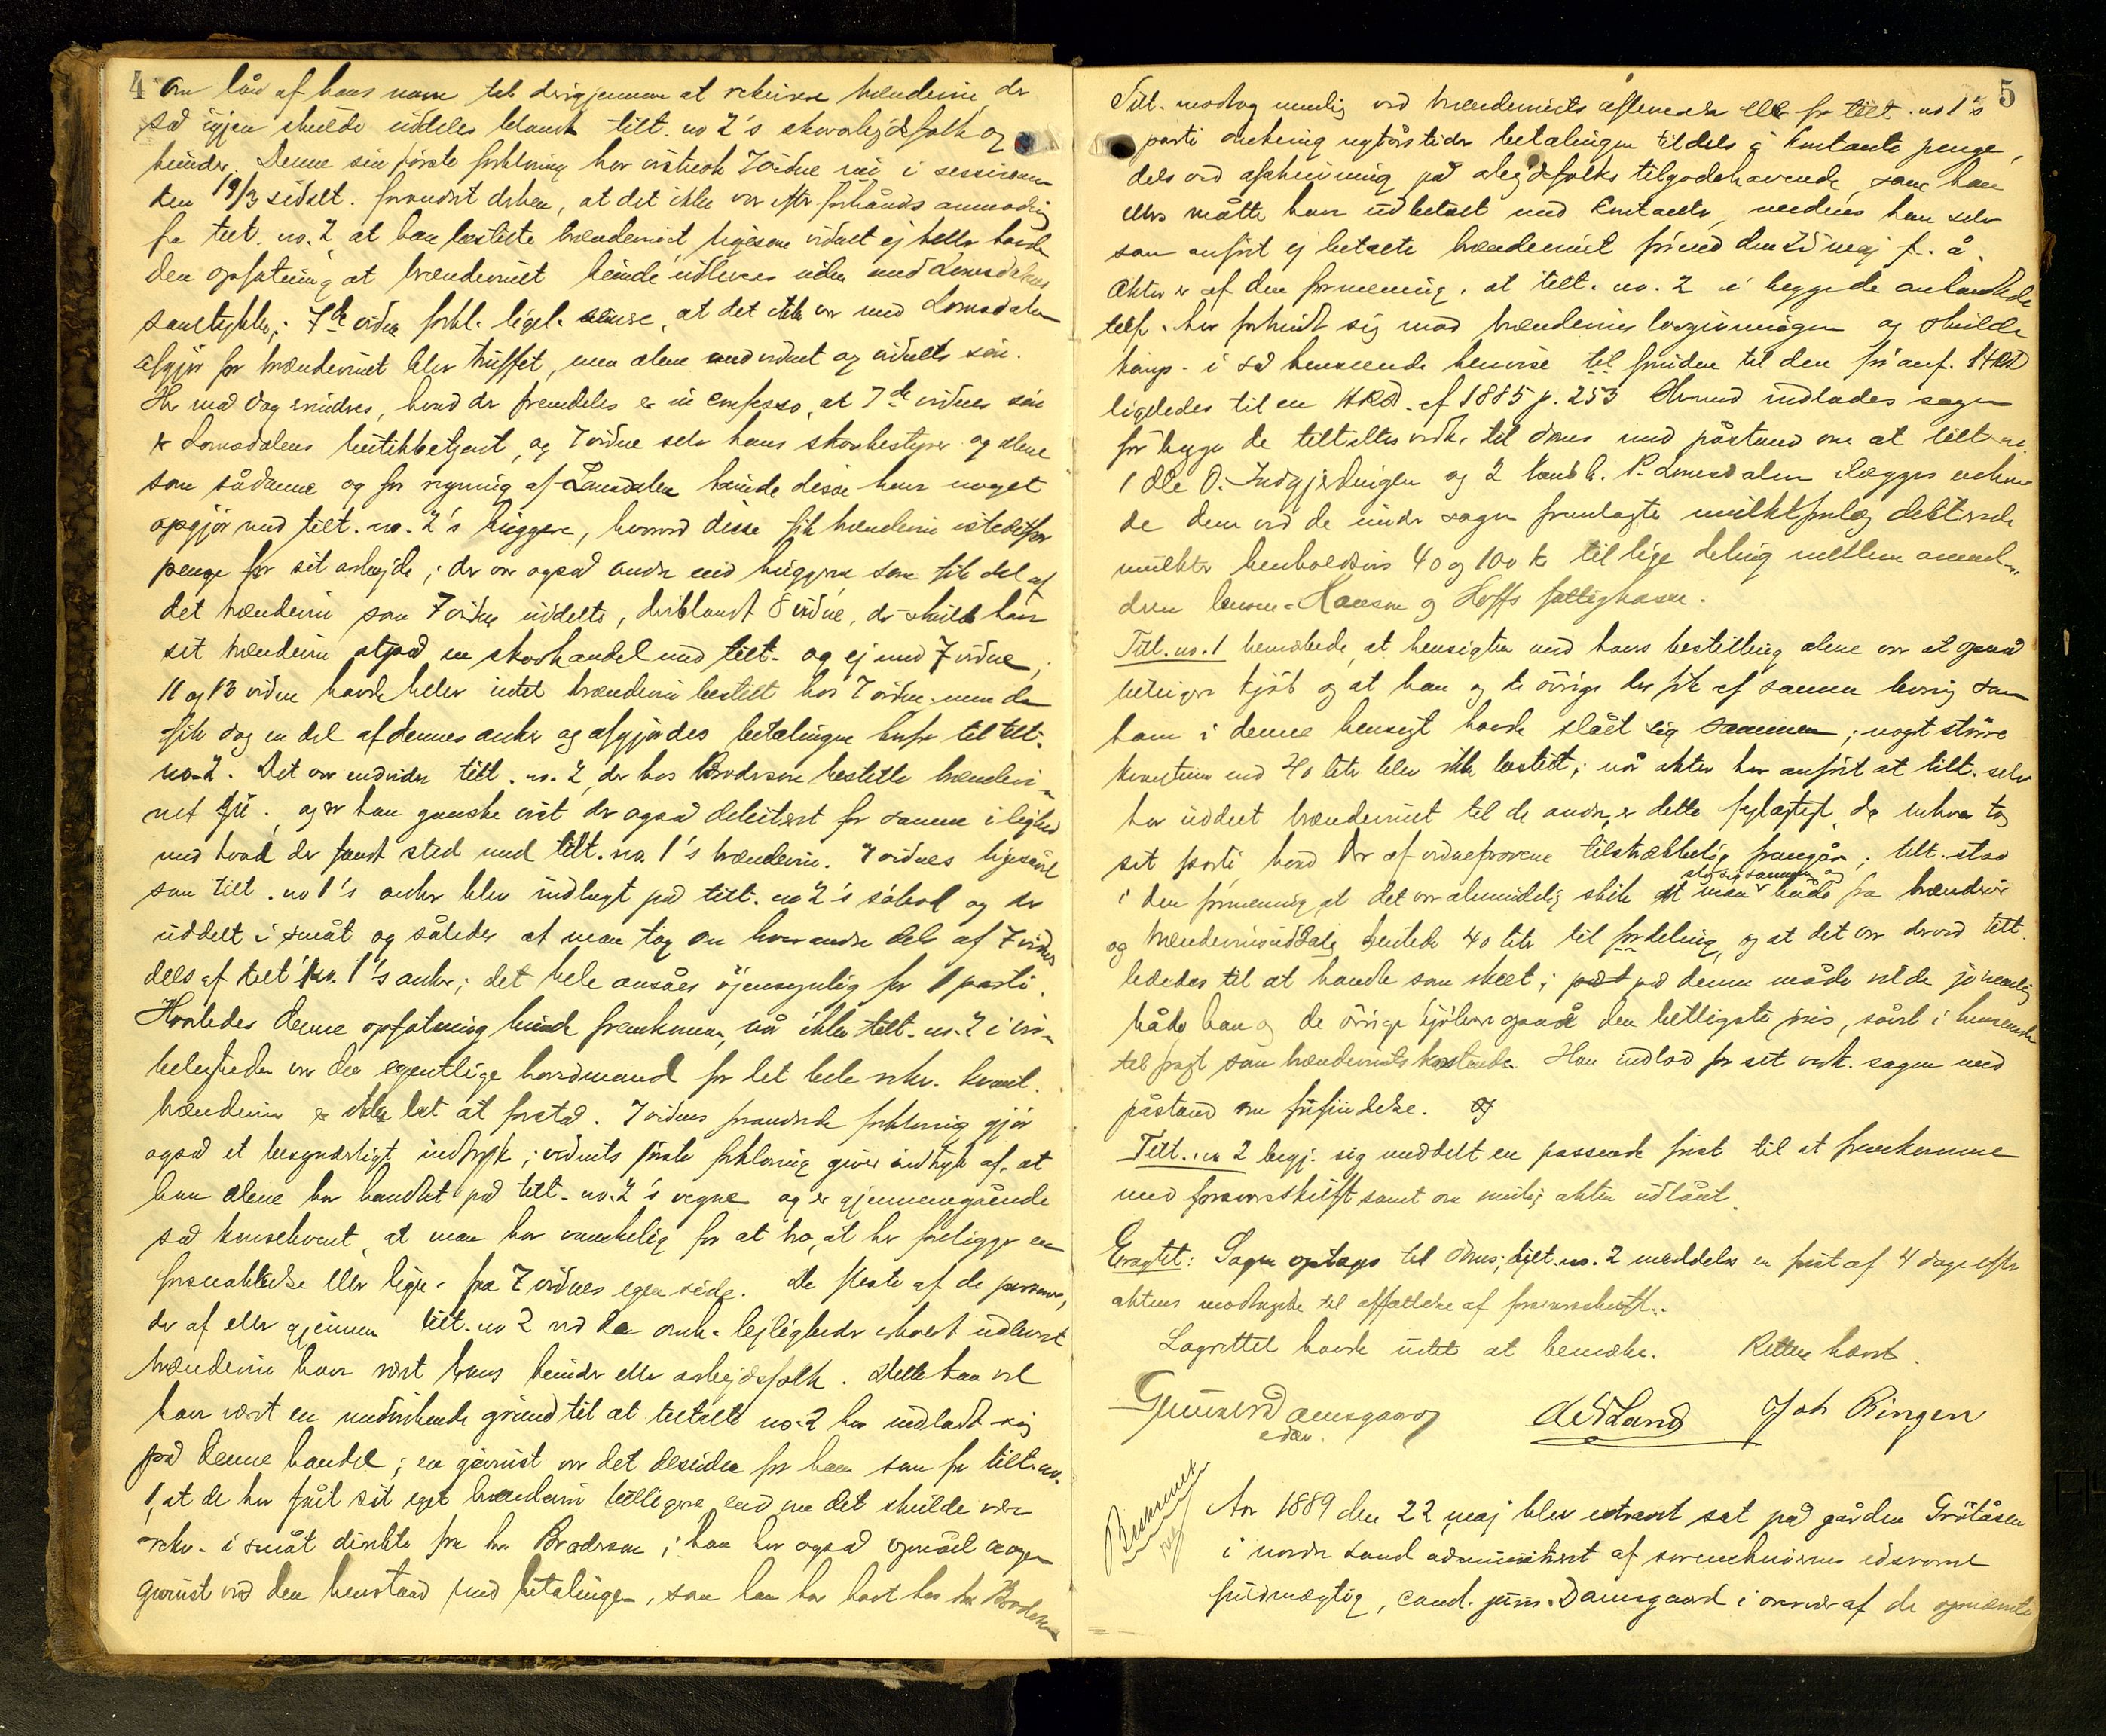 4 Om lån af hans navn til derigjennem at rekvirere brændevin, der
så igjen skulde uddeles blandt tilt. no 2's skovarbejdsfolk og
kunder. Denne sin første forklaring har vistnok 7 vidne nu i sessionen
den 19/3 sidst. forandret derhen, at det ikke var efter forhånds anmodning
fra tilt. no. 2 at han bestilte brændevinet ligesom vidnet ej heller havde
den opfatning at brændevinet kunde udleveres uden med Lomsdalens
samtykke; 7de vidne forkl. ligel. senere, at det ikke var med Lomsdalen
afgjør for brændevinet blev truffet, men alene med vidnet og vidnets søn.
Her må dog erindres, hvad der fremdeles er in confesso, at 7de vidnes søn
er Lomsdalens butikbetjent, og 7 vidne selv hans skovbestyrer og alene
som sådanne og for regning af Lomsdalen kunde disse have noget
opgjør med tilt. no. 2's huggere, hvorved disse fik brændevin istedetfor
penge for sit arbejde; der var også andre end huggerne som fik del af
det brændevin som 7 vidne uddelte, deriblandt 8 vidne, der skulde have
sit brændevin på en skovhandel med tilt. og ej med 7 vidne;
11 og 13 vidne havde heller intet brændevin bestilt hos 7 vidne, men de
fik dog en del af dennes anker og afgjordes betalingen herfor til tilt.
no. 2. Det var endvidere tilt. no. 2, der hos Brodersen bestilte brændevi-
net og er han ganske vist der også debiteret for samme i lighed
med hvad der fandt sted med tilt. no. 1's brændevin. 7 vidnes ligesåvel
som tilt. no 1's anker blev indlagt på tilt. no 2's såbod og der
uddelt i småt og således at man tog om hverandre dels af 7 vidnes
dels af tilt no. 1's anker; det hele ansåes øjensynlig for 1 parti.
Hvorledes denne opfatning kunde fremkomme, når ikke tilt. no. 2 i vir-
keligheden var den egentlige hovedmand for det hele rekv. kvant.
brændevin er ikke let at forstå. 7 vidnes forandrede forklaring gjør
også et besynderligt indtryk; vidnets første forklaring giver indtryk af, at
han alene har handlet på tilt. no. 2's vegne og er gjennemgående
så konsekvent, at man har vanskelig for at tro, at her foreligger en
forsnakkelse eller lign. fra 7 vidnes egen side. De fleste af de personer,
der af eller gjennem tilt. no 2 ved de omh. lejligheder erholdt udleveret
brændevin have været hans kunder eller arbejdsfolk. Dette kan vel
have været en medvirkende grund til at tiltalte no. 2 har indladt sig
på denne handel; en gevinst var det desuden for ham som for tilt. no.
1, at de har fået sit eget brændevin billigere, end om det skulde være
rekv. i småt direkte fra hr. Brodersen; han har også opnået nogen
gevinst ved den henstand med betalingen, som han har havt hos hr. Brodersen
5
Tilt. modtog nemlig ved brændevinets afleverelse eller for tilt. no 1's
parti omkring nytårstider betalingen tildels i kontante penge,
dels ved afskrivning på arbejdsfolks tilgodehavende, som han
ellers måtte have udbetalt med kontanter, medens han selv
som anført ej betalte brændevinet førend den 20 maj f. å.
Aktor er af den formening, at tilt. no. 2 i begge de anhandlede
tilf. har forbrudt sig mod brændevinslovgivningen og skulde
komp. i så henseende henvise til foruden til den før anf. HRD
ligeledes til en HRD. af 1885 p. 253 Hermed indlodes sagen
for begge de tiltaltes vedk. til doms med påstand om at tilt no.
1 Ole O. Indgjerdingen og 2 landh. P. Lomsdalen ilægges enhver
de dem ved de under sagen fremlagte mulktforelæg dikterede
mulkter henholdsvis 40 og 100 kr til lige deling mellem anmel-
deren Hansen og Hoffs fattigkasse.
Tilt. no. 1 bemærkede at hensigten med hans bestilling alene var at opnå
billigere kjøb og at han og de øvrige der fik af samme levering som
ham i denne hensigt havde slået sig sammen; noget større
kvantum end 40 liter blev ikke bestilt; når aktor har anført at tilt. selv
har uddelt brændevinet til de andre, er dette fejlagtigt, da enhver tog
sit parti, hvad der af vidneprovene tilstrækkelig fremgår; tilt. stod
slog sig sammen og
i den formening, at det var almindelig skik at man både fra brænderier
og brændevinsudsalg hentede 40 liter til fordeling, og at det var derved tilt.
lededes til at handle som skeet; på denne måde vilde jo nemlig
både han og de øvrige kjøbere opnå den billigste pris, såvel i henseende
til fragt som brændevinets kostende. Han indlod for sit vedk. sagen med
påstand om frifindelse.
Tilt. no 2 begj. sig meddelt en passende frist til at fremkomme
med forsvarsskrift samt om mulig akten udlånt.
Eragtet: Sagen optages til doms; tilt. no. 2 meddeles en frist af 4 dage efter
aktens modtagelse til affattelse af forsvarsskrift.
Lagrettet havde intet at bemærke. Retten hævet.
Gunnerd Damsgaard
edsv.
A Island Joh Ringen
Beskrevet
Aar 1889 den 22 maj blev extraret sat på gården Grötåsen
i nordre Land administreret af sorenskriverens edsvorne
fuldmægtig, cand. juris. Damsgaard i overvær af de opnævnte